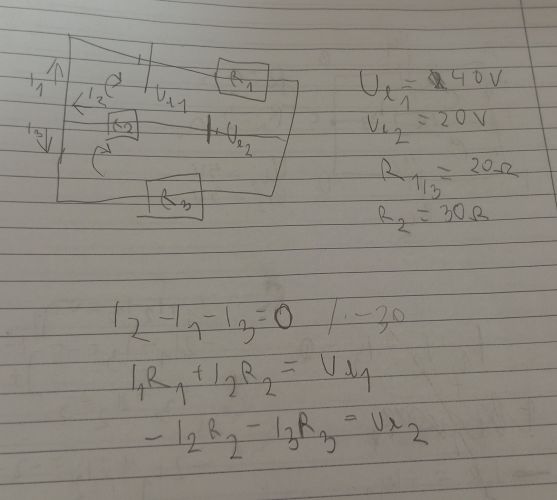 R₁
I₁
I₂
Ue₁
R₂
Ue₂
I₃
R₃
Ue₁ = 40V
Ue₂ = 20V
R₁,₃ = 20Ω
R₂ = 30Ω
I₂ - I₁ - I₃ = 0 /·-30
I₁R₁ + I₂R₂ = Ue₁
- I₂R₂ - I₃R₃ = Ue₂